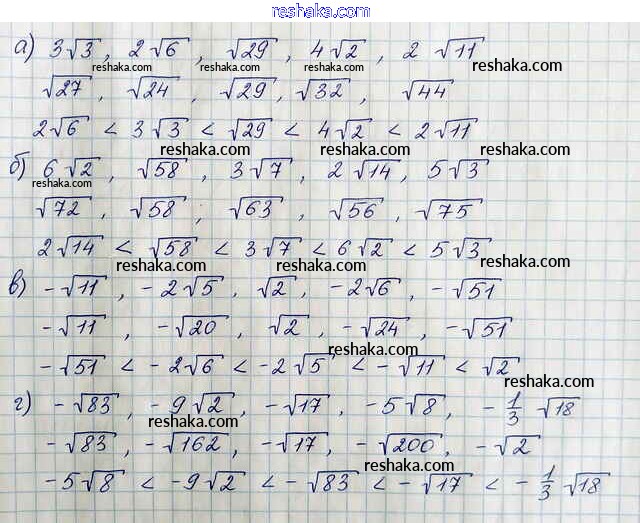 reshaka.com
а) 3√3, 2√6, √29, 4√2, 2 √11
reshaka.com reshaka.com reshaka.com reshaka.com
√27, √24, √29, √32, √44
2√6 < 3√3 < √29 < 4√2 < 2√11
reshaka.com reshaka.com reshaka.com
б) 6√2, √58, 3√7, 2√14, 5√3
reshaka.com reshaka.com reshaka.com
√72, √58, √63, √56, √75
2√14 < √58 < 3√7 < 6√2 < 5√3
reshaka.com reshaka.com
в) -√11, -2√5, √2, -2√6, -√51
reshaka.com
-√11, -√20, √2, -√24, -√51
reshaka.com
-√51 < -2√6 < -2√5 < -√11 < √2
reshaka.com
г) -√83, -9√2, -√17, -5√8, -1/3 √18
reshaka.com
-√83, -√162, -√17, -√200, -√2
reshaka.com
-5√8 < -9√2 < -√83 < -√17 < -1/3 √18